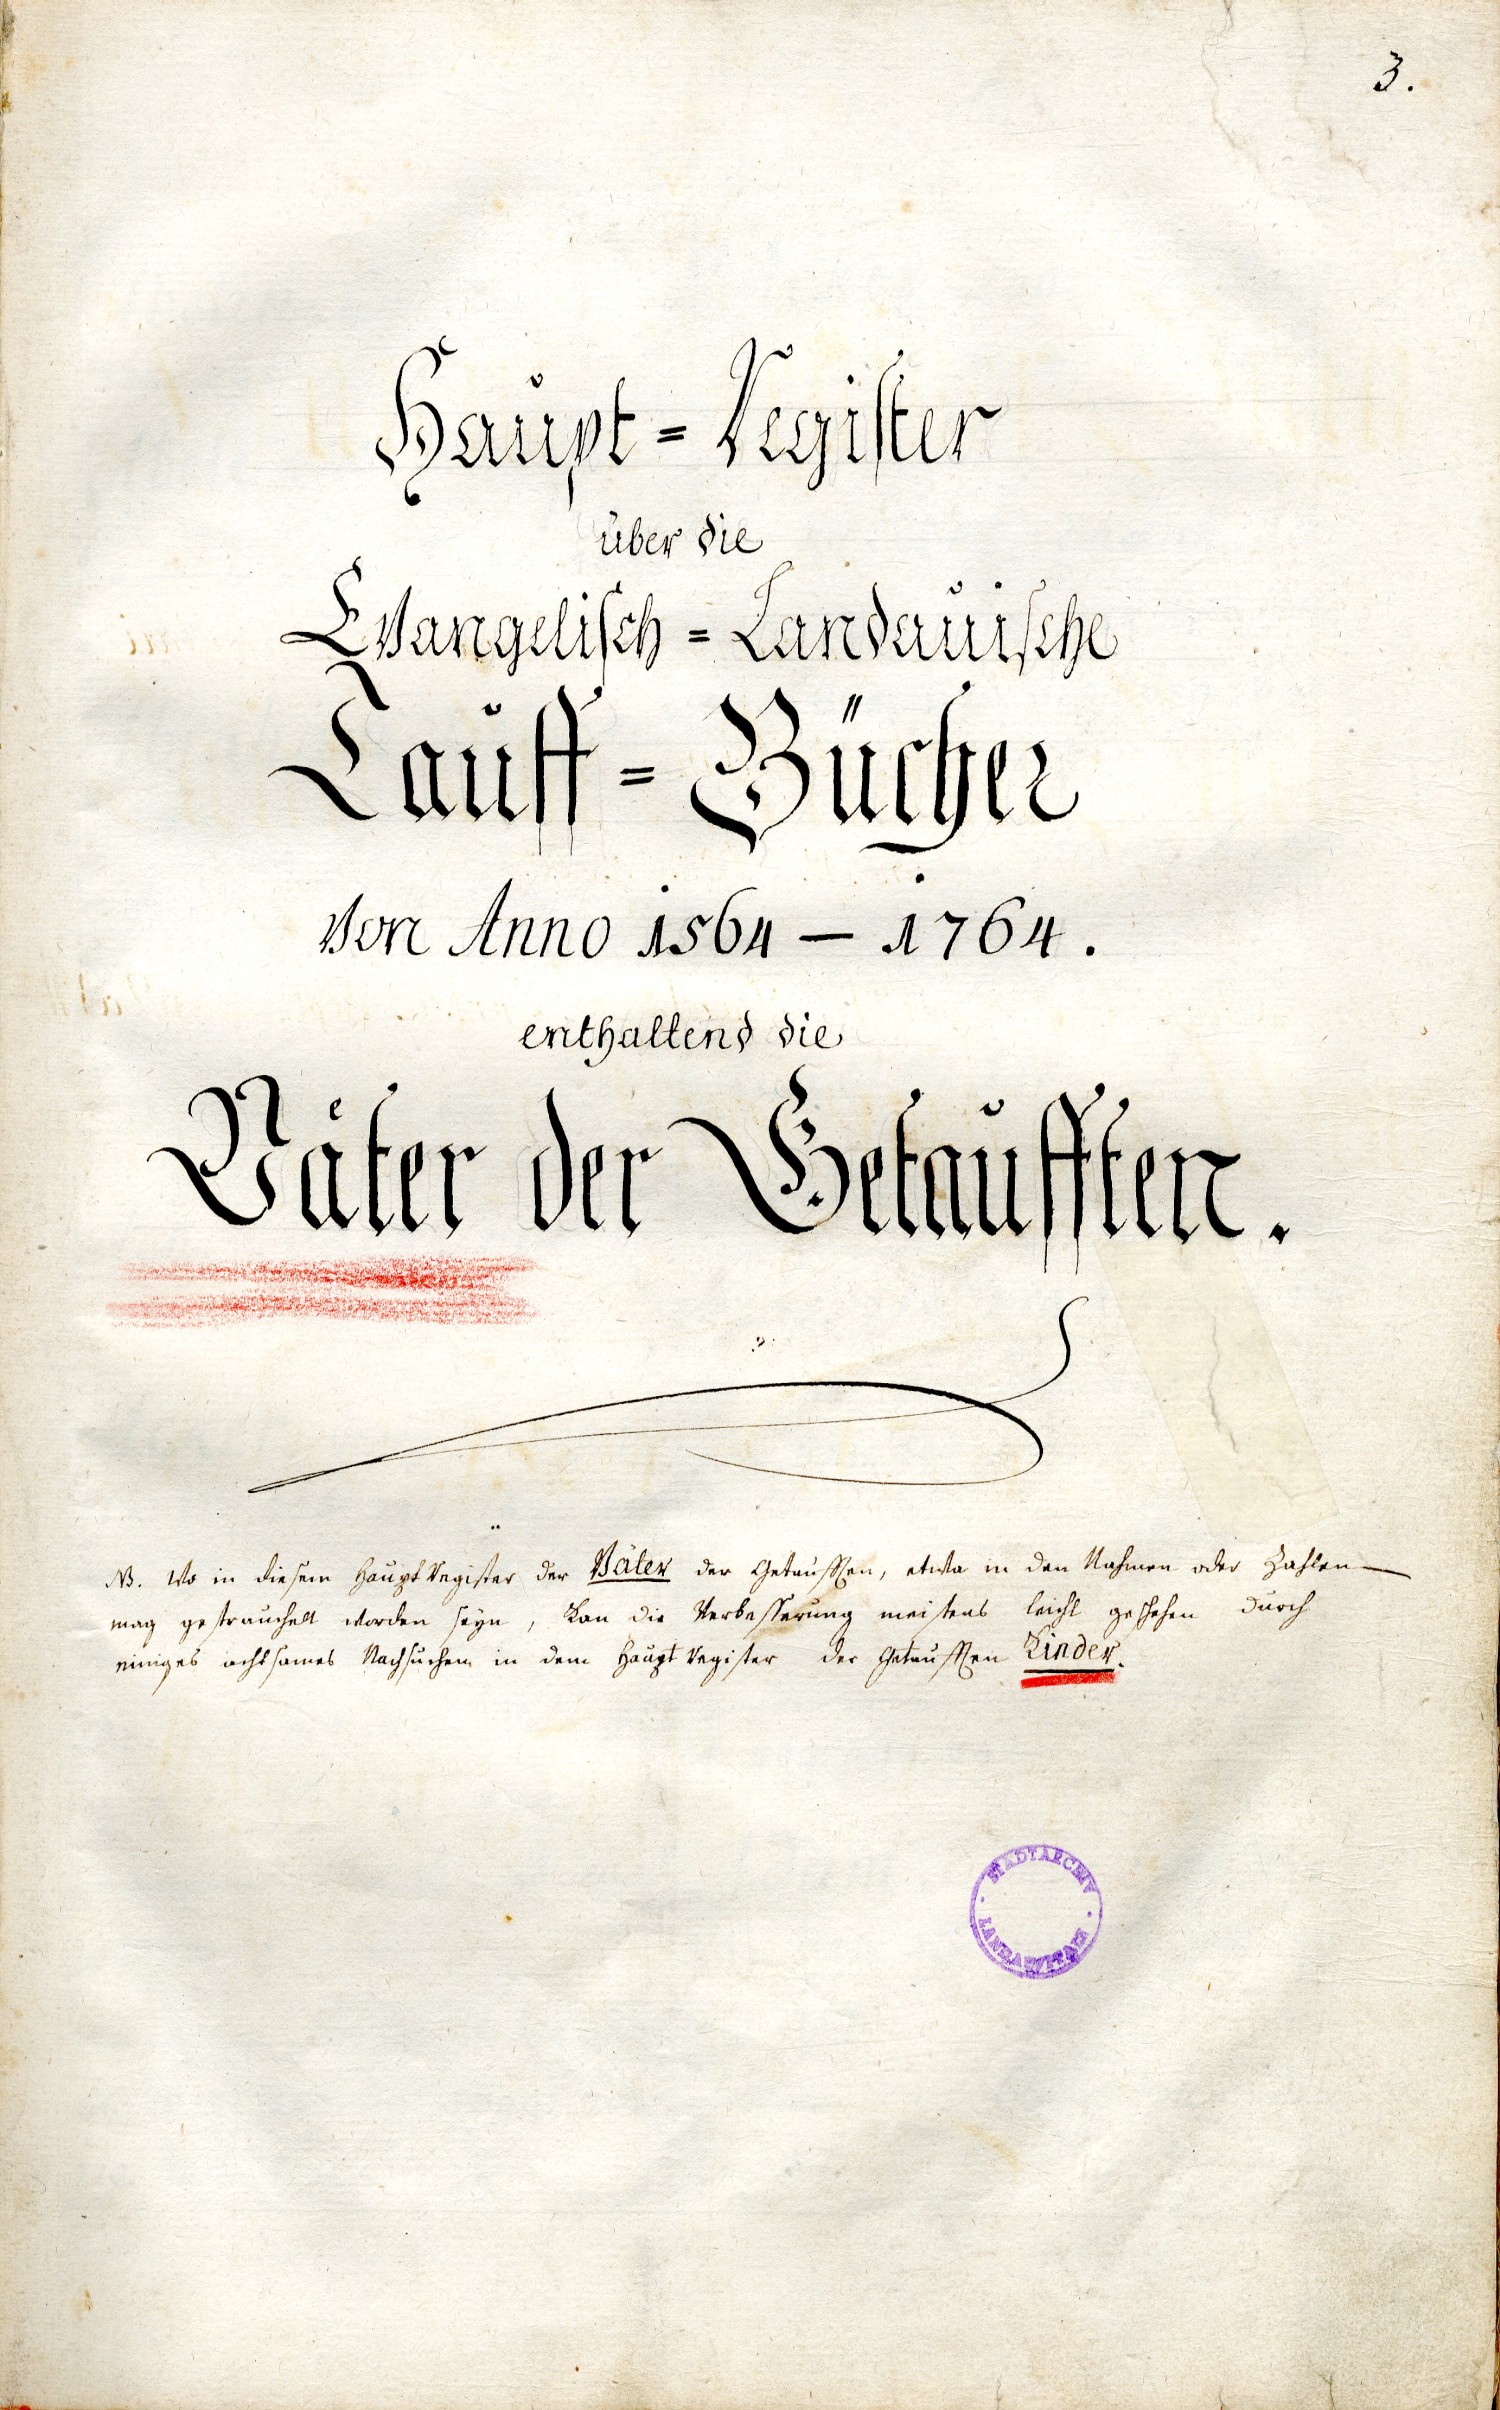 3.
Haupt = Register
über die
Evangelisch = Landauische
Tauff = Bücher
von Anno 1564 — 1764.
enthaltend die
Väter der Getaufften.
NB. Wo in diesem Haupt Register der Väter der Getaufften, etwa in den Nahmen oder Zahlen
mag gestrauchelt worden seyn, kan die Verbesserung meistens leicht geschehen durch
einiges achtsames Nachsuchen in dem Haupt Register der Getaufften Kinder.
STADTARCHIV
LANDAU/PFALZ